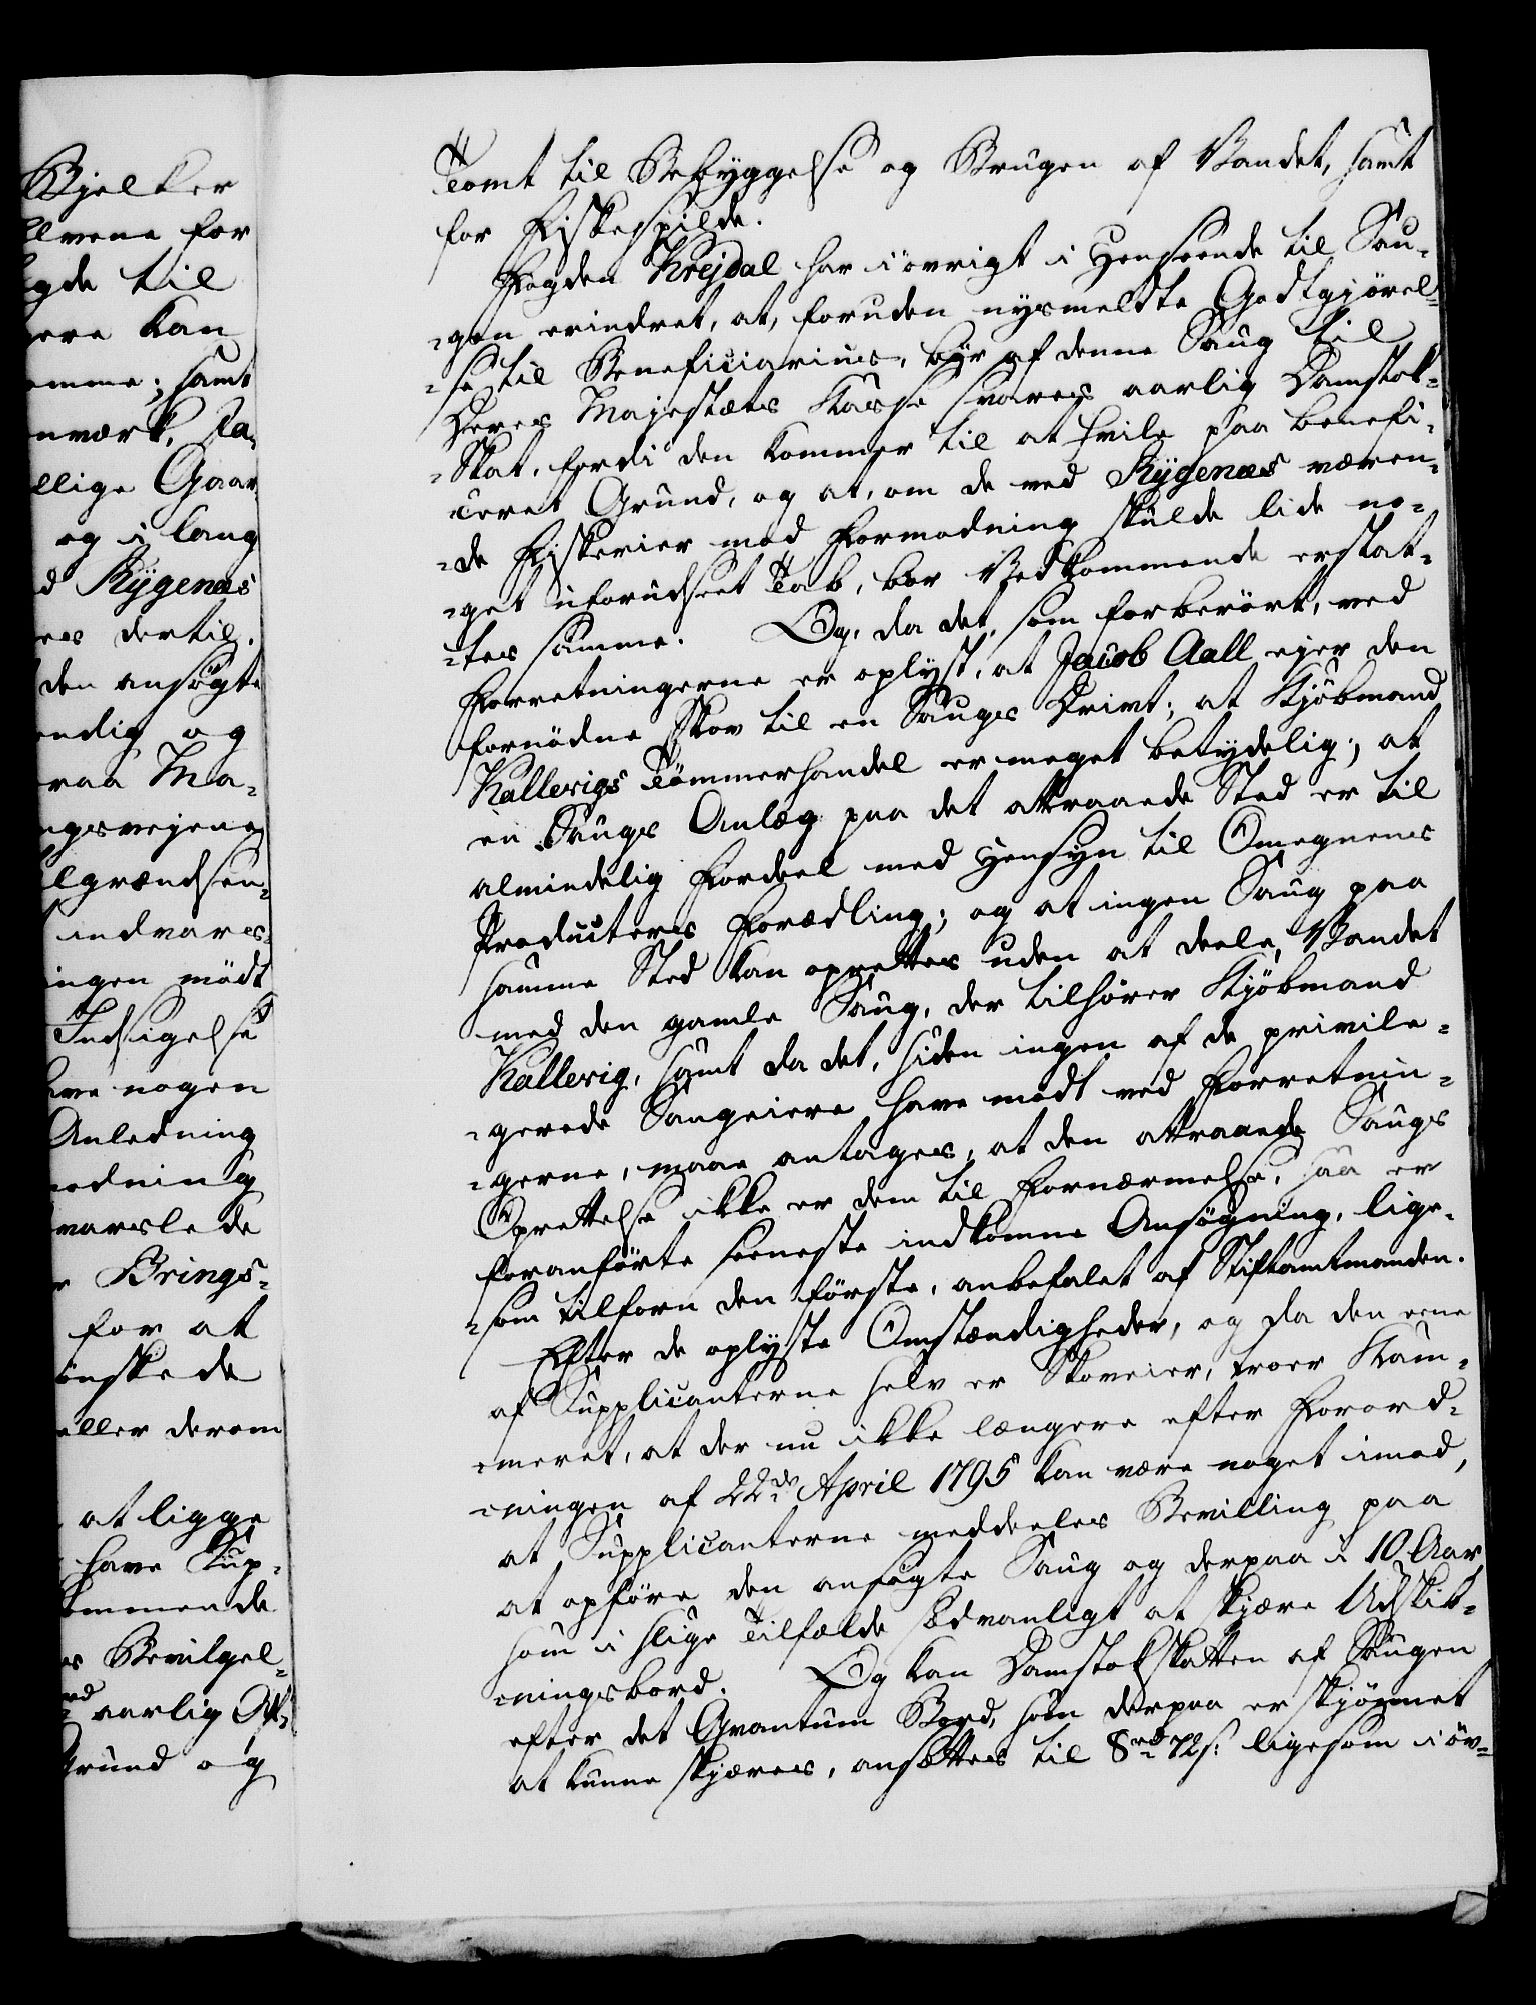 Bjelker
Elvene for
gde til
ere kan
omme; samt
nværk, Ja-
llige Gaar-
og i lang
d Rygenæs
es dertil.
den ansøgte
endig og
raa Ma-
ngsveiene
lgrændsen-
indvares
ingen mødt
Indsigelse
ve nogen
Anledning
edning
varslede
r Brings-
for at
ønskede
eller derom
at ligge
have Sup-
ommende
es Bevilgel-
aarlig Af-
Grund og
Tomt til Bebyggelse og Brugen af Vandet, samt
for Fiskespilde.
Fogden Krejdal har iøvrigt i Henseende til Sau-
-gen erindret, at, foruden nysmeldte Godtgjørel-
-se til Beneficiarius, bør af denne Saug til
Deres Majestæts Kasse svares aarlig Damstok-
-Skat, fordi den kommer til at hvile paa benefi-
ceret Grund, og at, om de ved Rygenæs væren-
-de Fiskerier mod Formodning skulde lide no-
-get uforudseet Tab, bør Vedkommende erstat-
-tes samme. Og, da det, som forberørt, ved
Forretningerne er oplyst, at Jacob Aall ejer den
fornødne Skov til en Saugs Drivt; at Kjøbmand
Kallevigs Tømmerhandel er meget betydelig; at
en Saugs Anlæg paa det attraaede Sted er til
almindelig Fordeel med Hensyn til Omegnens
Producters Forædling; og at ingen Saug paa
samme Sted kan oprettes uden at deele Vandet
med den gamle Saug, der tilhører Kjøbmand
Kallevig, samt da det, siden ingen af de privile-
-gerede Saugeiere have mødt ved Forretnin-
-gerne, maae antages, at den attraaede Saugs
Oprettelse ikke er dem til Fornærmelse, saa er
foranførte seeneste indkomne Ansøgning, lige-
-som tilforn den første, anbefalet af Stiftamtmanden.
Efter de oplyste Omstændigheder, og da den eene
af Supplicanterne selv er Skoveier, troer Kam-
-meret, at der nu ikke længere efter Forord-
-ningen af 22de April 1795 kan være noget imod,
at Supplicanterne meddeeles Bevilling paa
at opføre den ansøgte Saug og derpaa i 10 Aar
som i slige Tilfælde sædvanligt at skjære Udskib-
-ningsbord. Og kan Damstokskatten af Saugen
efter det Qvantum Bord, som derpaa er skjønnet
at kunne skjæres, ansættes til 8rd 72s: ligesom iøv-